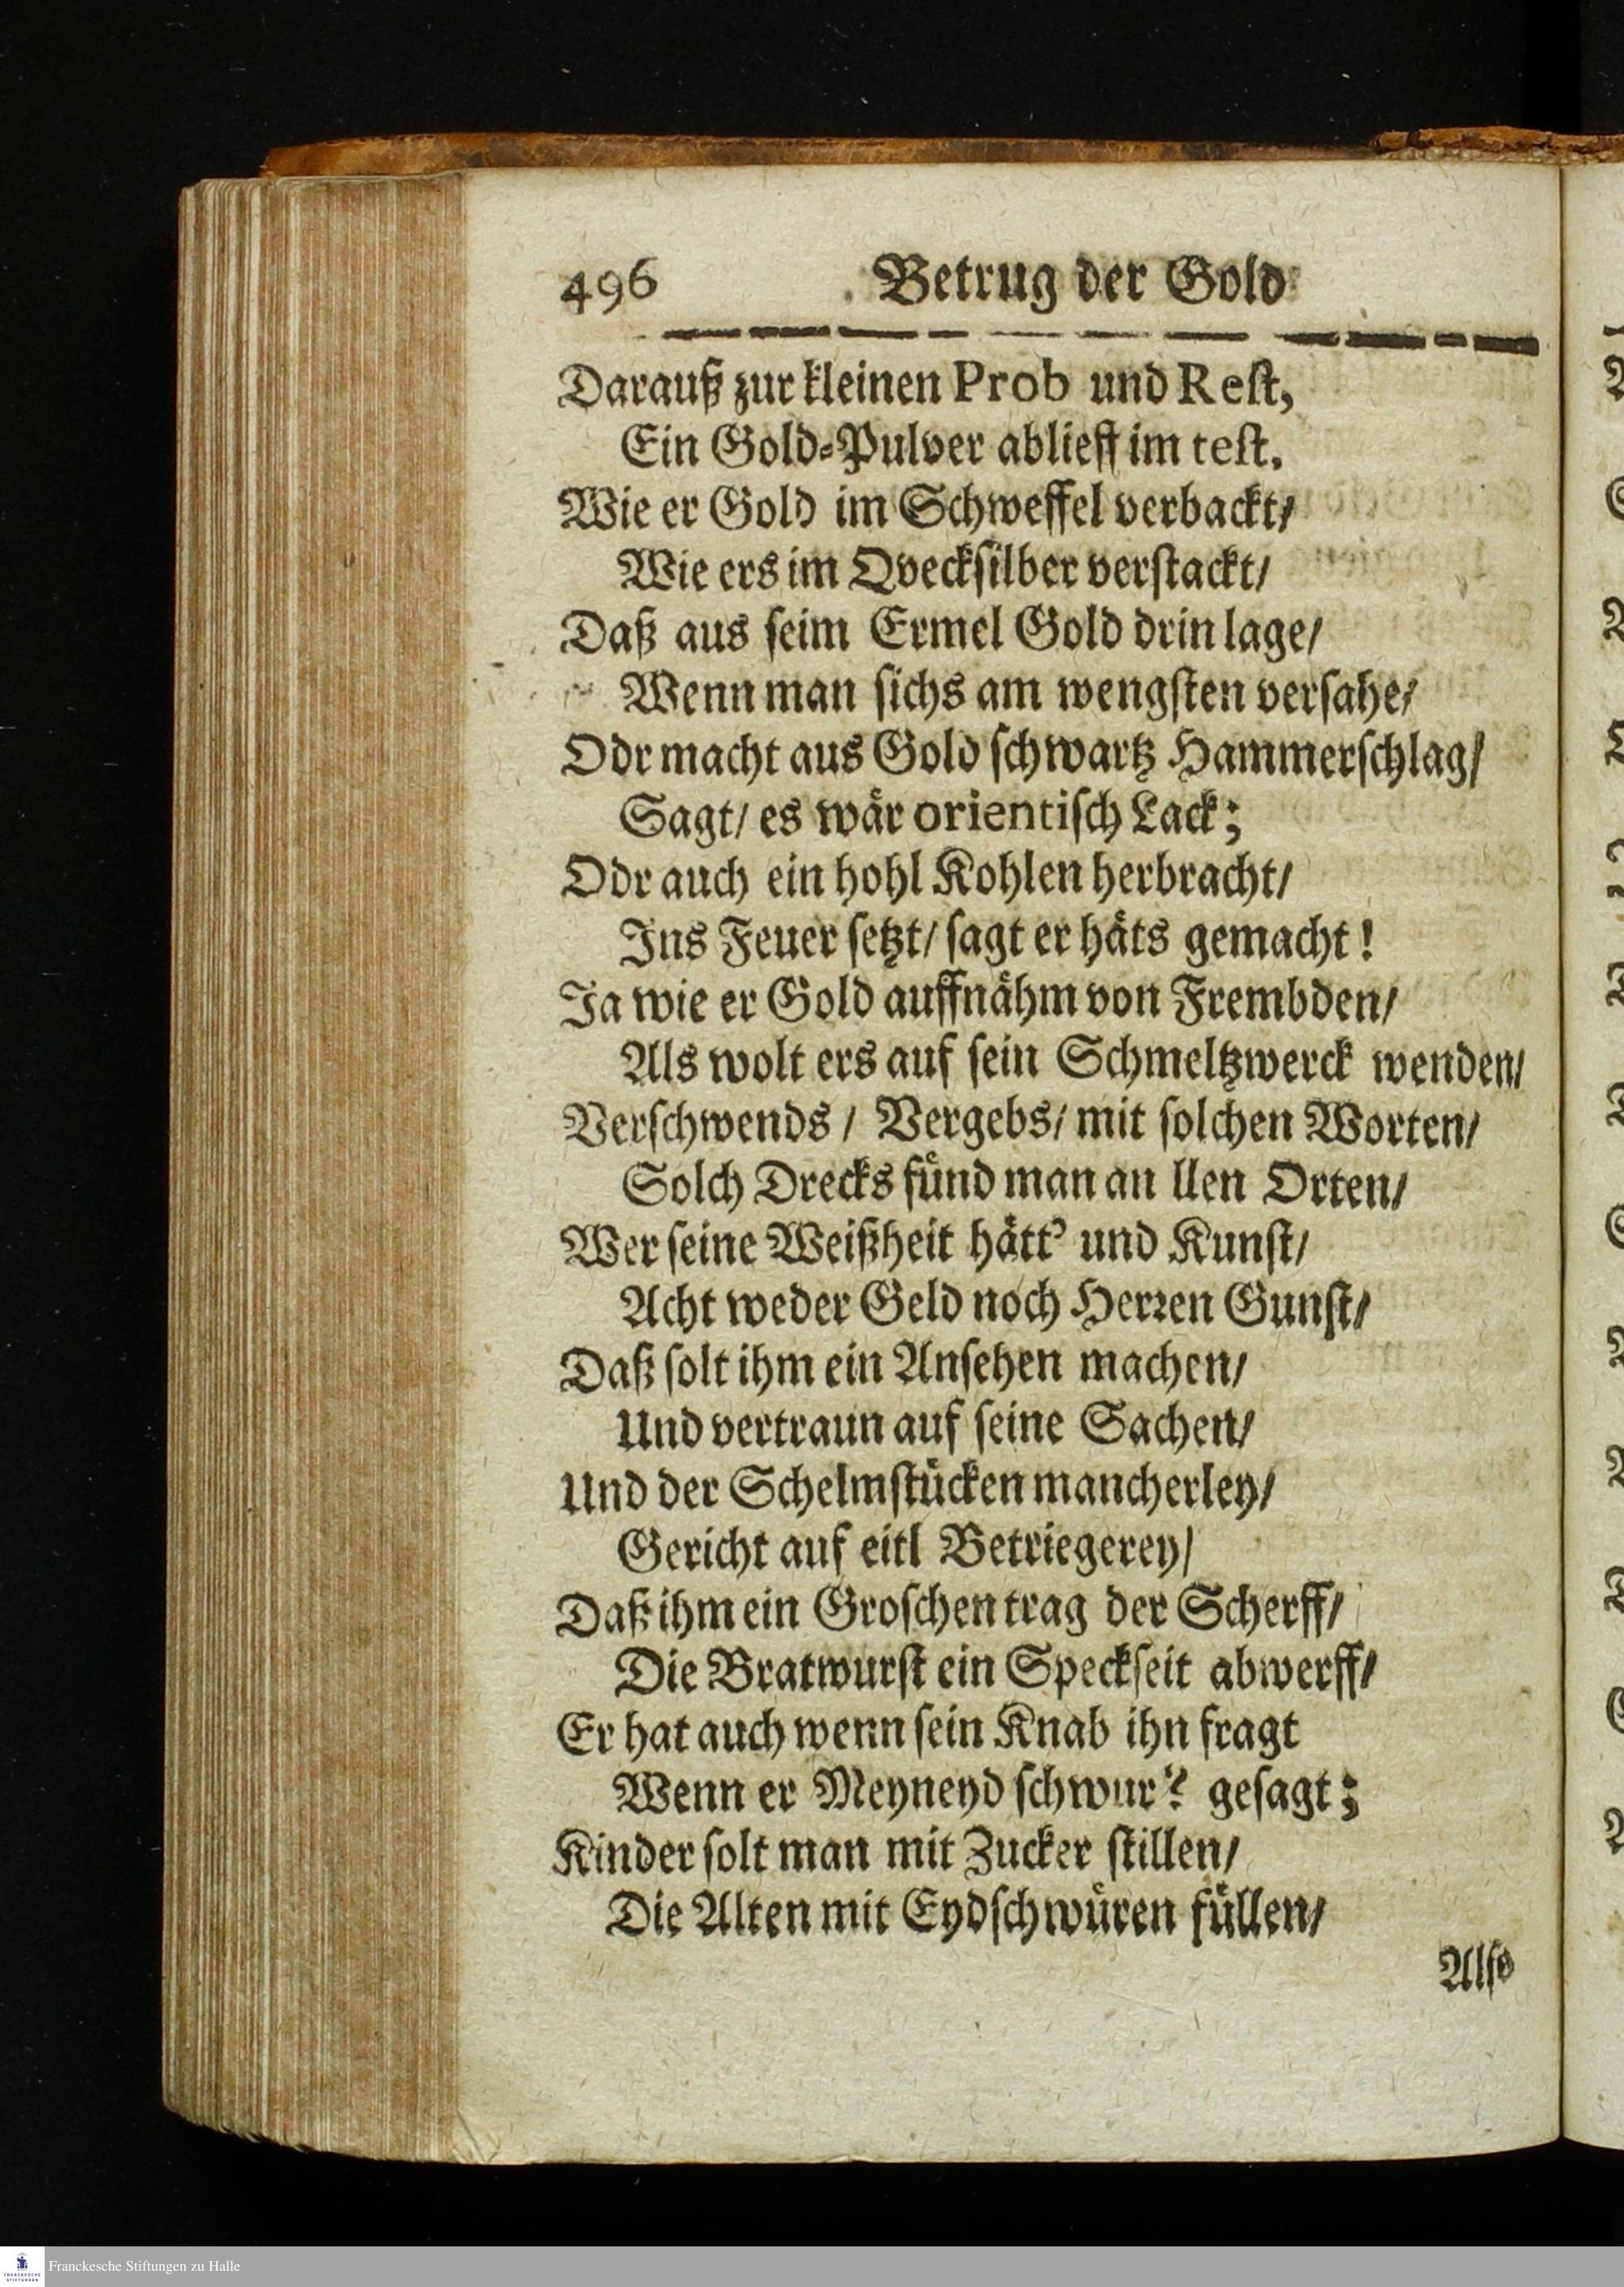 496 Betrug der Gold
Darauß zur kleinen Prob und Reſt,
Ein Gold-Pulver ablieff im teſt.
Wie er Gold im Schweffel verbackt/
Wie ers im Qveckſilber verſtackt/
Daß aus ſeim Ermel Gold drin lage/
Wenn man ſichs am wengſten verſahe/
Odr macht aus Gold ſchwartz Hammerſchlag/
Sagt/ es wår orientiſch Lack;
Odr auch ein hohl Kohlen herbracht/
Ins Feuer ſetzt/ ſagt er håts gemacht!
Ja wie er Gold auffnåhm von Frembden/
Als wolt ers auf ſein Schmeltzwerck wenden/
Verſchwends / Vergebs/ mit ſolchen Worten/
Solch Drecks fuͤnd man an llen Orten/
Wer ſeine Weißheit hått' und Kunſt/
Acht weder Geld noch Herꝛen Gunſt/
Daß ſolt ihm ein Anſehen machen/
Und vertraun auf ſeine Sachen/
Und der Schelmſtuͤcken mancherley/
Gericht auf eitl Betriegerey/
Daß ihm ein Groſchen trag der Scherff/
Die Bratwurſt ein Speckſeit abwerff/
Er hat auch wenn ſein Knab ihn fragt
Wenn er Meyneyd ſchwur? geſagt;
Kinder ſolt man mit Zucker ſtillen/
Die Alten mit Eydſchwuͤren fuͤllen/
Alſo
Franckesche Stiftungen zu Halle
FRANCKESCHE
STIFTUNGEN